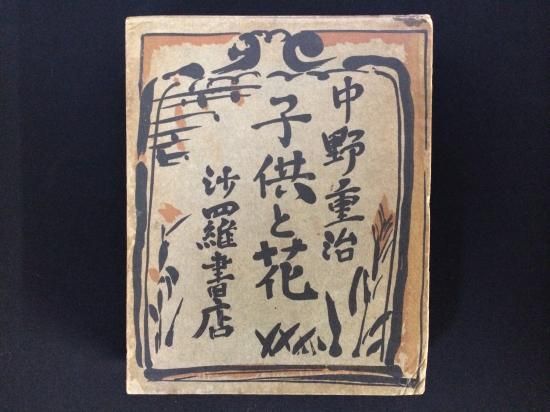 中野重治
子供と花
沙羅書店